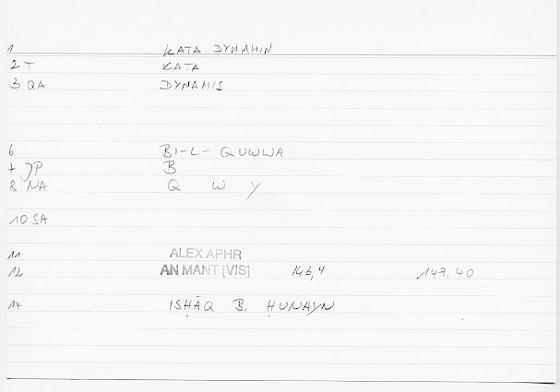 1 KATA DYNAMIN
2 T KATA
3 QA DYNAMIS
6 BI-L-QUWWA
7 JP B
8 NA Q W Y
10 SA
11 ALEX APHR
12 AN MANT [VIS] 146,4 149,40
14 ISḤĀQ B. ḤUNAYN